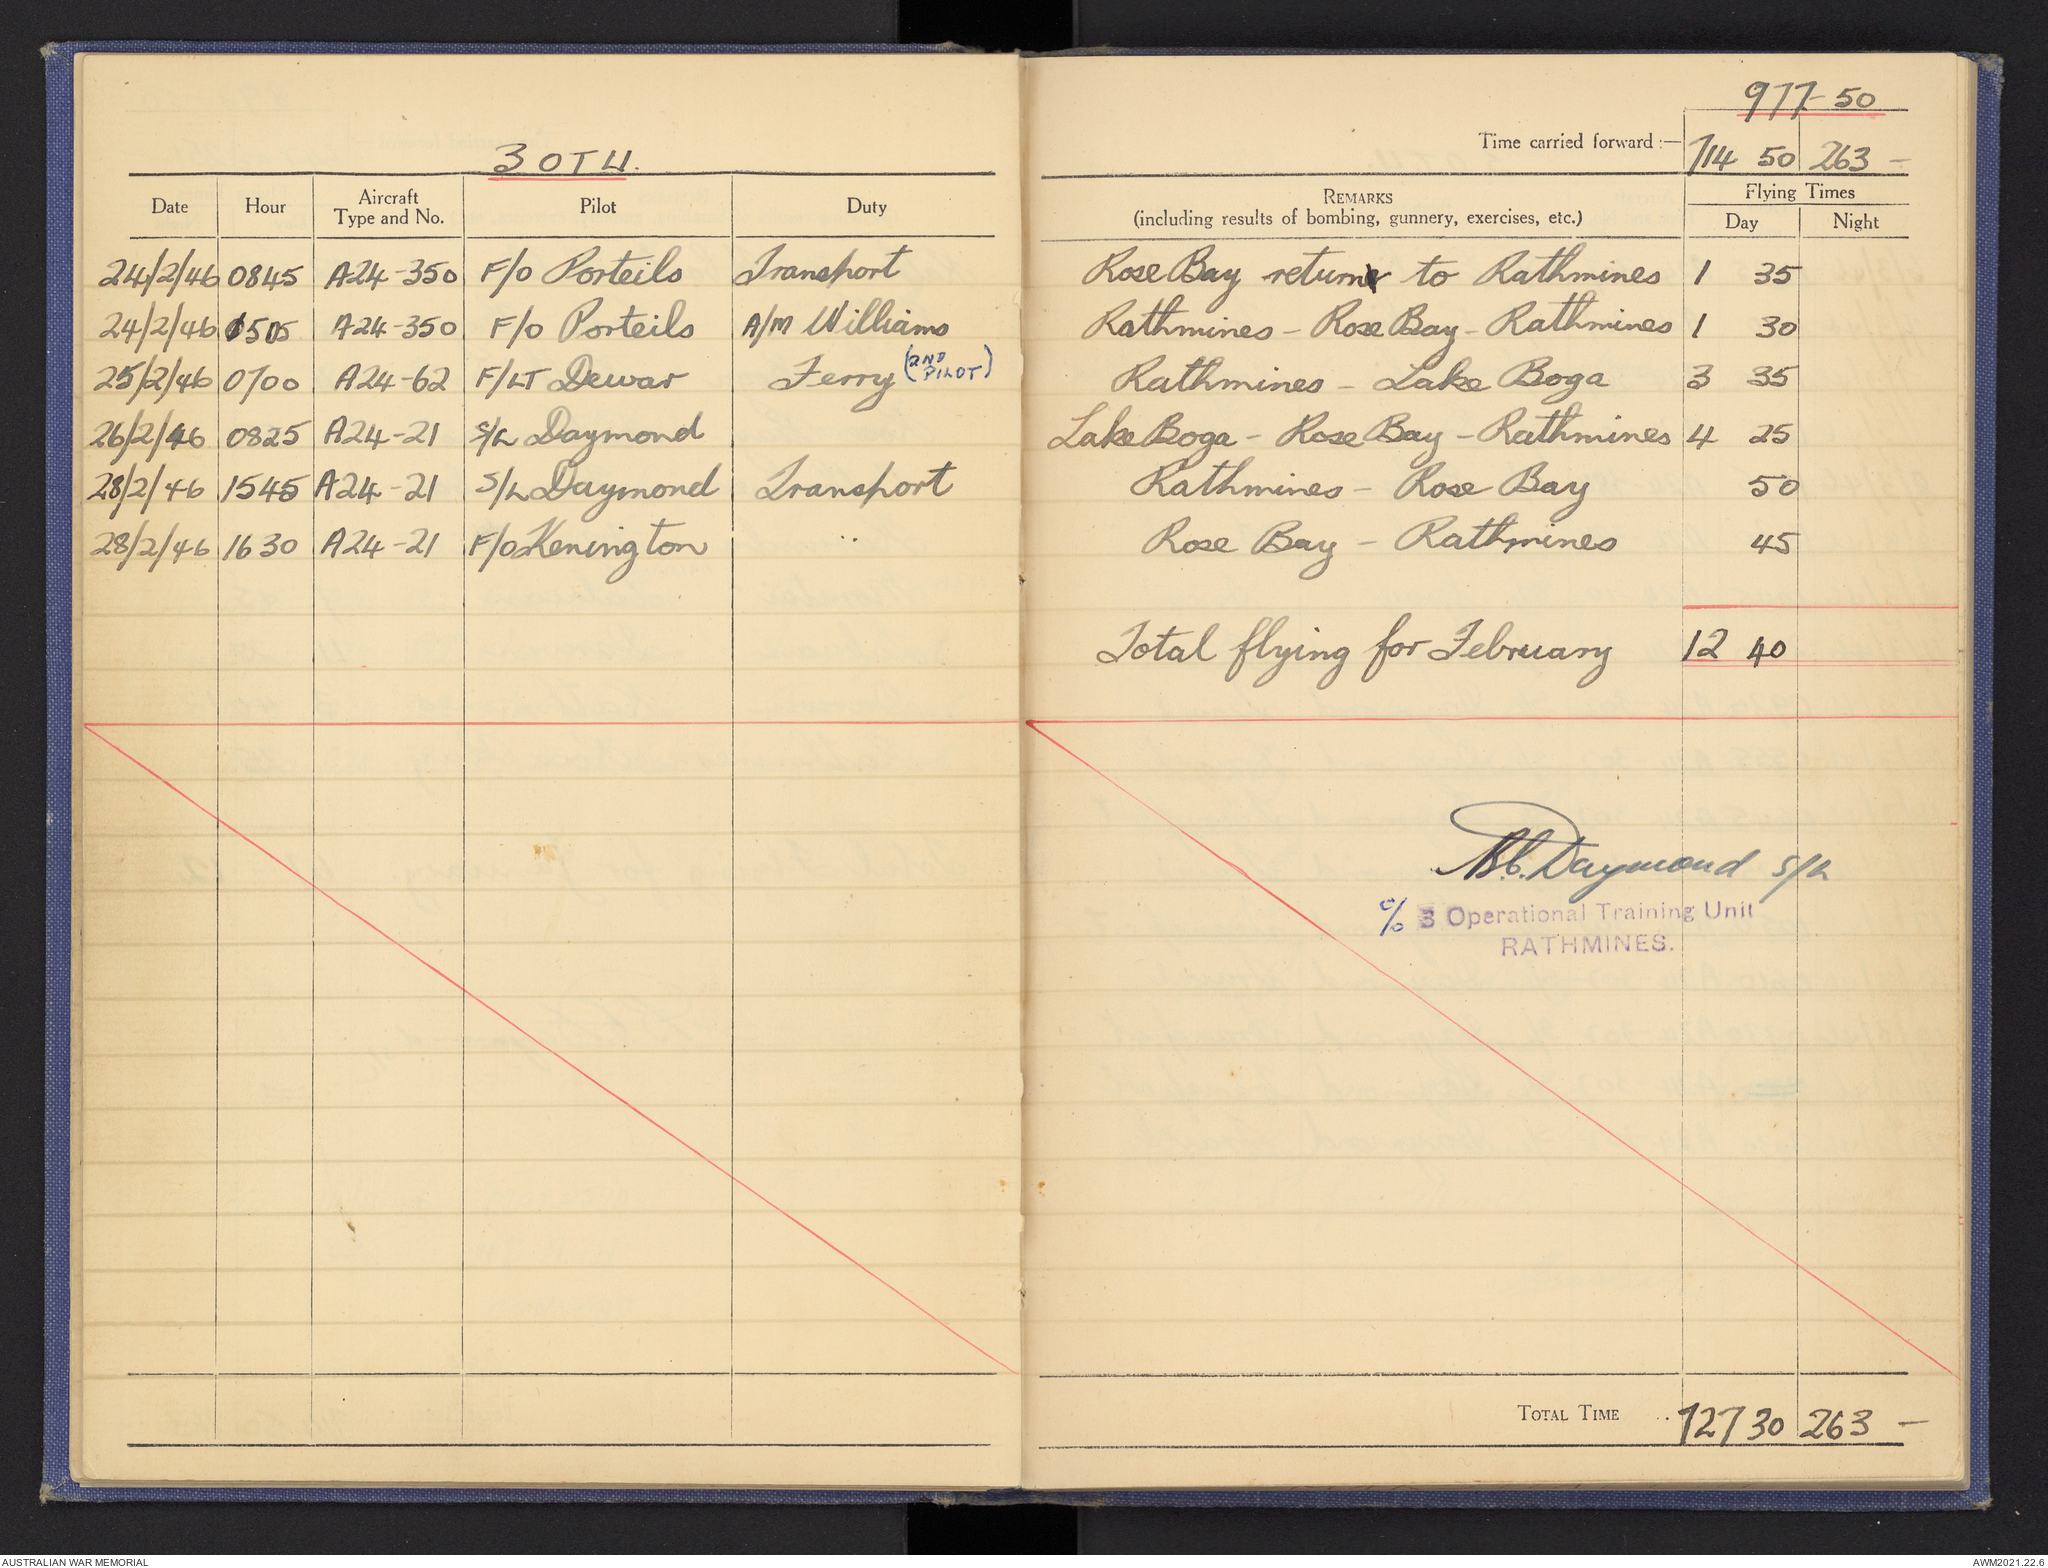 977-50
Time carried forward :— 714 50 263 —
3 OTU.
Date Hour Aircraft Type and No. Pilot Duty
REMARKS (including results of bombing, gunnery, exercises, etc.) Flying Times Day Night
24/2/46 0845 A24-350 F/O Porteils Transport Rose Bay return to Rathmines 1 35
24/2/46 1505 A24-350 F/O Porteils A/M Williams Rathmines - Rose Bay - Rathmines 1 30
25/2/46 0700 A24-62 F/LT Dewar Ferry (2ND PILOT) Rathmines - Lake Boga 3 35
26/2/46 0825 A24-21 S/L Daymond Lake Boga - Rose Bay - Rathmines 4 25
28/2/46 1545 A24-21 S/L Daymond Transport Rathmines - Rose Bay 50
28/2/46 1630 A24-21 F/O Kenington " Rose Bay - Rathmines 45
Total flying for February 12 40
Daymond S/L
c/o 3 Operational Training Unit
RATHMINES.
TOTAL TIME .. 727 30 263 —
AUSTRALIAN WAR MEMORIAL
AWM2021.22.6